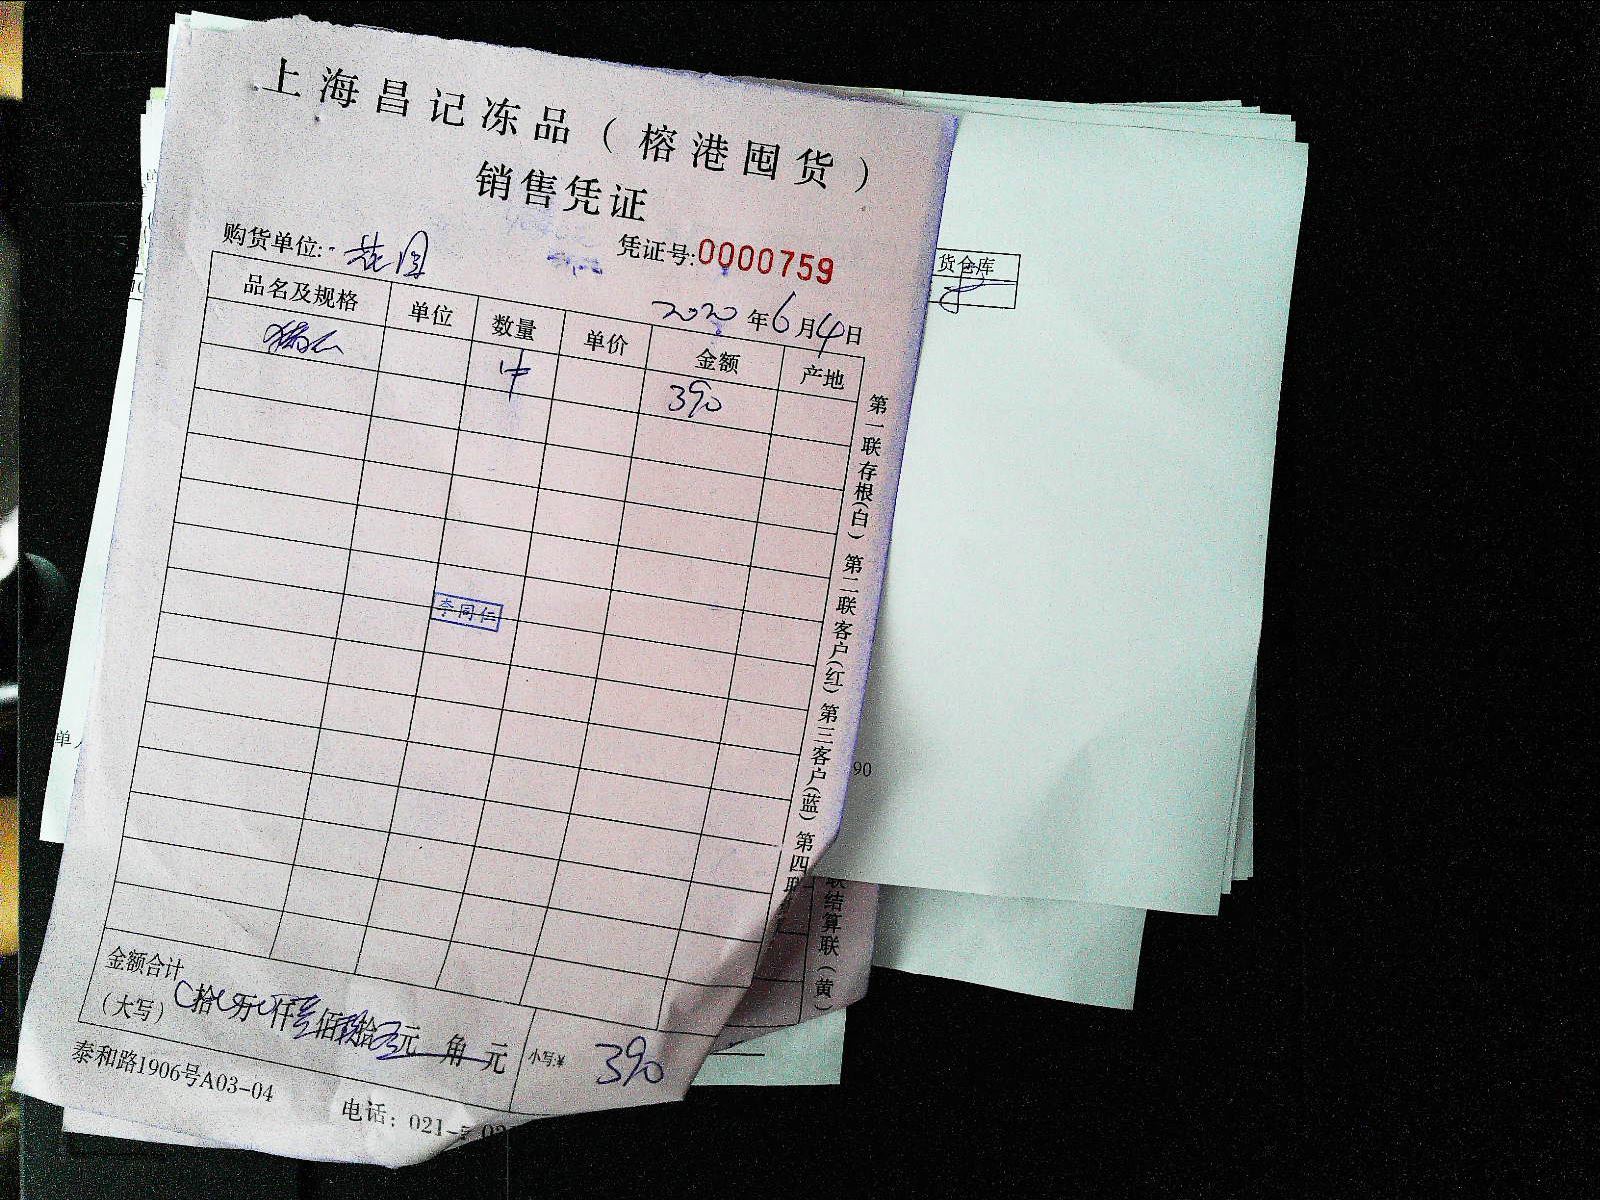 上海昌记冻品（榕港囤货）
销售凭证
购货单位: 花园 凭证号:0000759
2020年6月4日
品名及规格 单位 数量 单价 金额 产地
390
李同仁
第一联存根(白) 第二联客户(红) 第三客户(蓝) 第四联
联结算联(黄)
金额合计
(大写) 拾 万 仟叁佰玖拾 元 角 元 小写:¥ 390
泰和路1906号A03-04 电话: 021-
货仓库
单
90